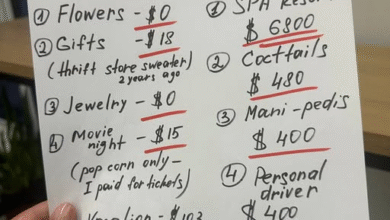 ① Flowers - $0
② Gifts - $18
(thrift store sweater)
2 years ago
③ Jewelry - $0
④ Movie
night - $15
(pop corn only -
I paid for tickets)
① SPA Resort
$ 6800
② Coctails
$ 480
③ Mani-pedis
$ 400
④ Personal
driver
$ 400